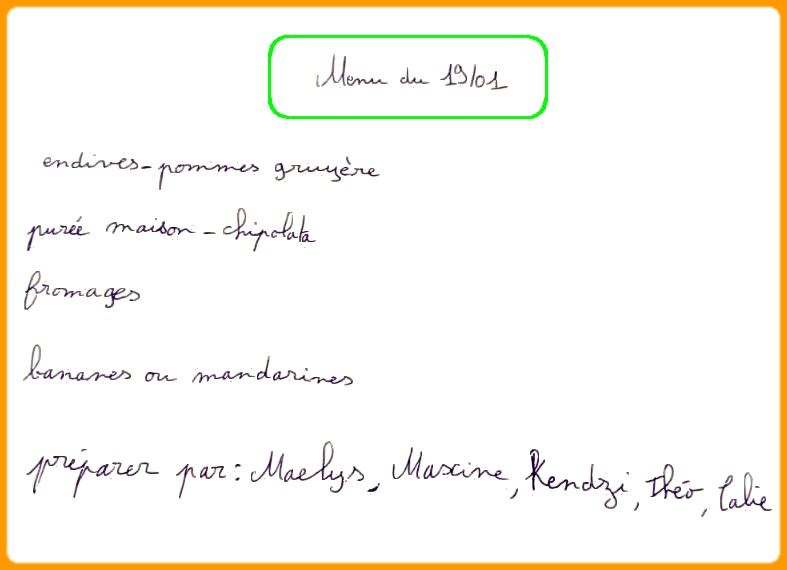 Menu du 19/01
endives-pommes gruyère
purée maison - chipolata
fromages
bananes ou mandarines
préparer par : Maelys, Maxine, Kendzi, Théo, Calie